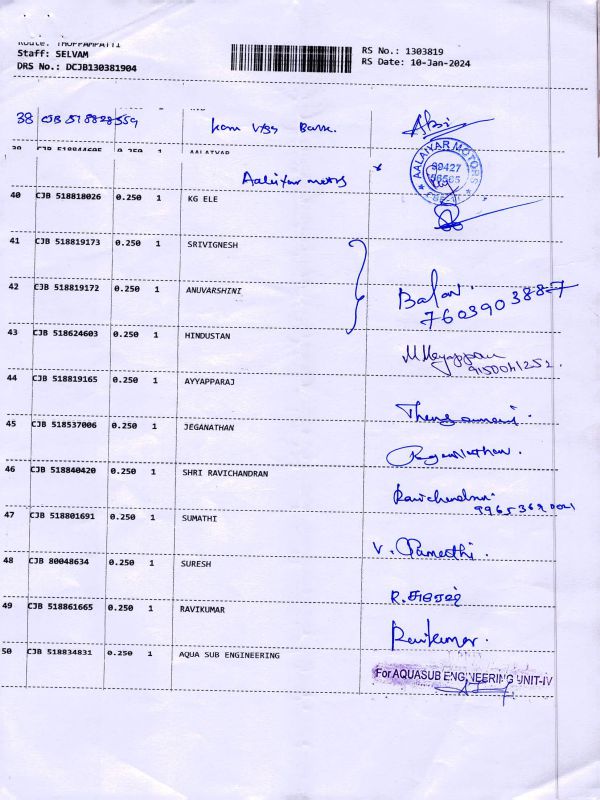 Route: THOPPAMPATTI
Staff: SELVAM
DRS No.: DCJB130381904
RS No.: 1303819
RS Date: 10-Jan-2024
38 CJB 518828559 Bank.
39 0.250 1 AALAIYAR
AALAIYAR MOTORS
Aalaiyar motors
40 CJB 518818026 0.250 1 KG ELE
41 CJB 518819173 0.250 1 SRIVIGNESH
42 CJB 518819172 0.250 1 ANUVARSHINI
Balan
7603903887
43 CJB 518624603 0.250 1 HINDUSTAN
M. Meyappan
9150041252.
44 CJB 518819165 0.250 1 AYYAPPARAJ
45 CJB 518537006 0.250 1 JEGANATHAN
46 CJB 518840420 0.250 1 SHRI RAVICHANDRAN
Ravichandran
47 CJB 518801691 0.250 1 SUMATHI
48 CJB 80048634 0.250 1 SURESH
R. சுரேஷ்
49 CJB 518861665 0.250 1 RAVIKUMAR
Ravikumar.
50 CJB 518834831 0.250 1 AQUA SUB ENGINEERING
For AQUASUB ENGINEERING UNIT-IV